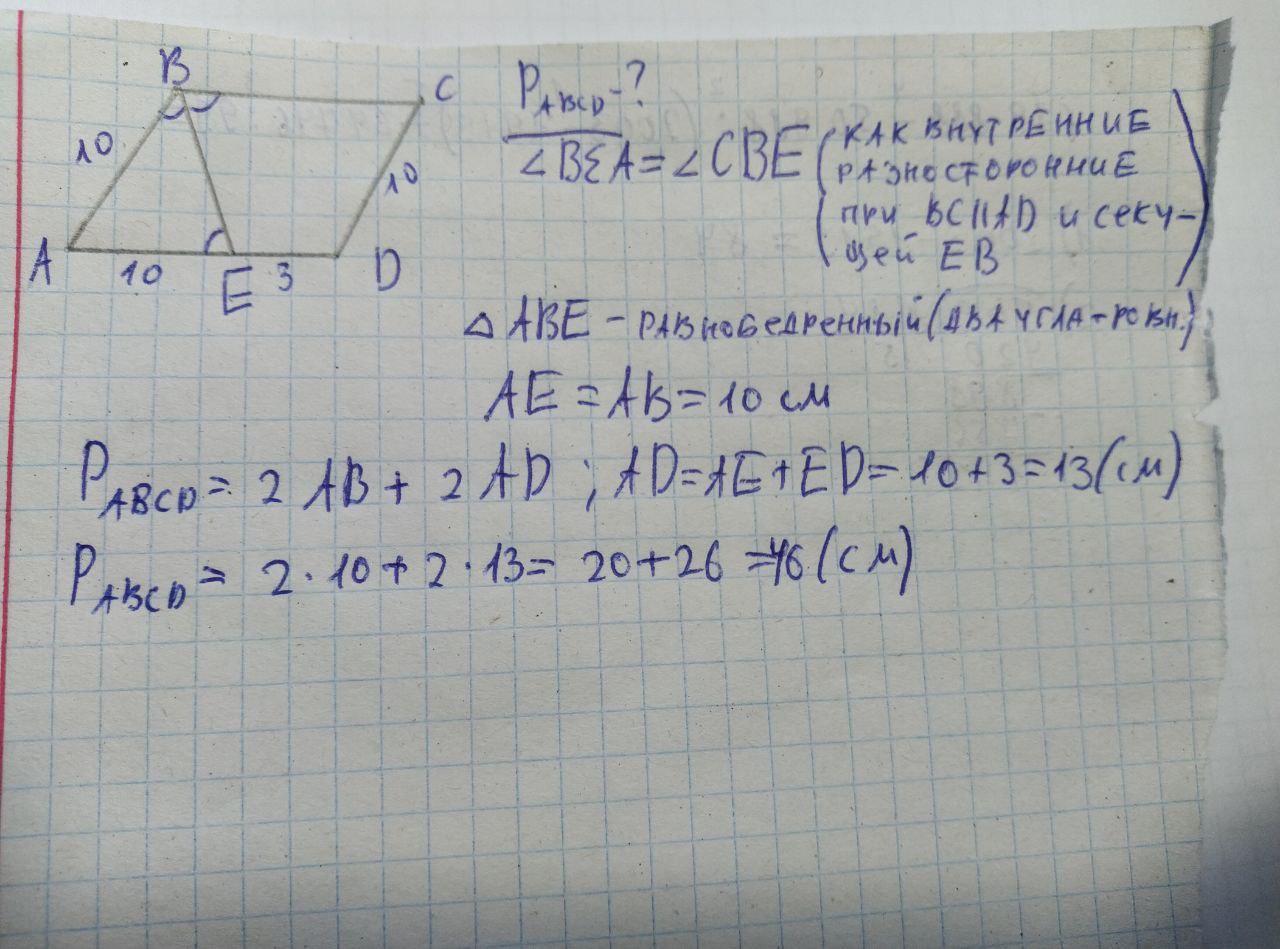 B
C
10
10
A
10
E
3
D
P ABCD - ?
∠BEA = ∠CBE (КАК ВНУТРЕННИЕ
РАЗНОСТОРОННИЕ
при BC||AD и секу-
щей EB)
△ ABE - РАВНобедренный (ДВА УГЛА - РОВН.)
AE = AB = 10 см
P ABCD = 2 AB + 2 AD ; AD = AE + ED = 10 + 3 = 13 (см)
P ABCD = 2 · 10 + 2 · 13 = 20 + 26 = 46 (см)